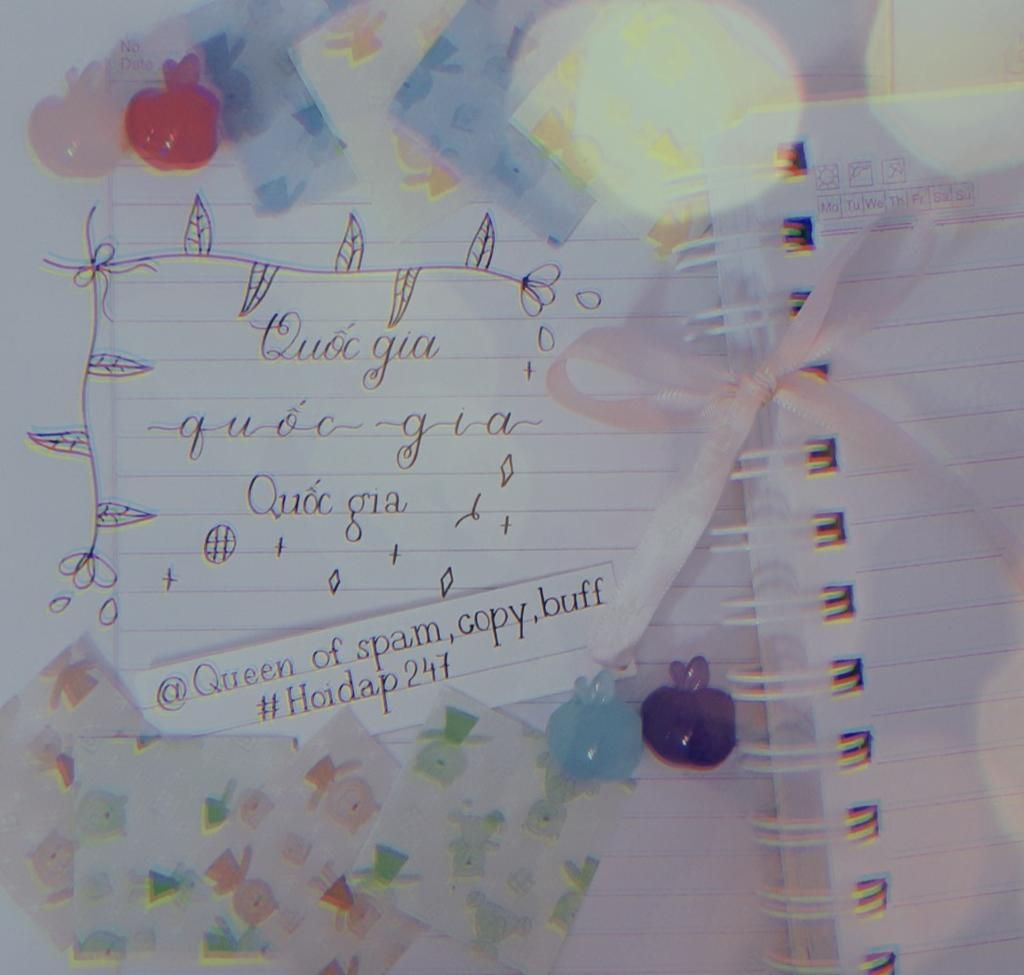 No.
Date
Mo Tu We Th Fr Sa Su
Quốc gia
quốc gia
Quốc gia
@Queen of spam, copy, buff
#Hoidap247